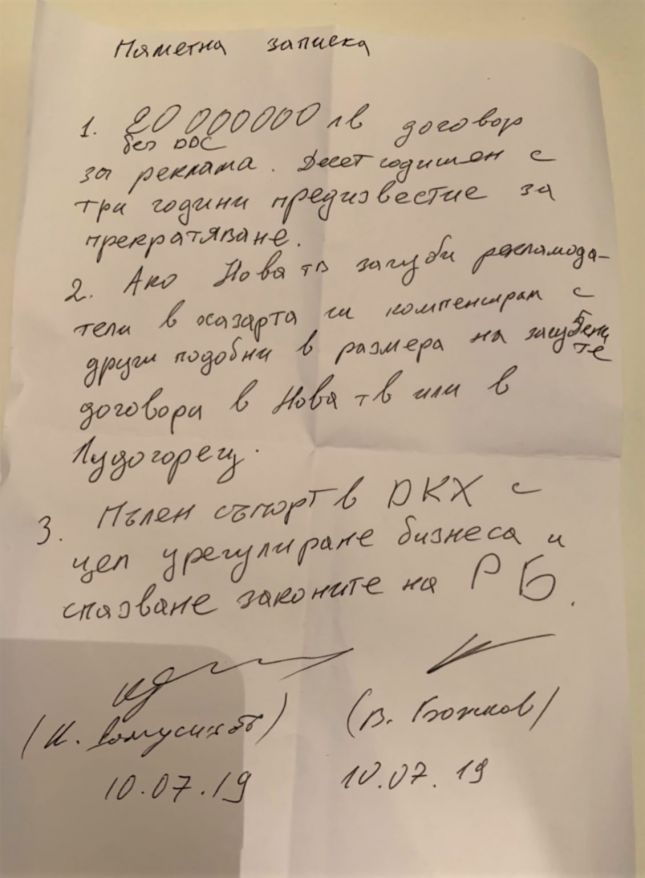 Паметна записка
1. 20 000000 лв договор
без ДДС
за реклама. Десетгодишен с
три години предизвестие за
прекратяване.
2. Ако Нова тв загуби рекламода-
тели в хазарта ги компенсирам с
други подобни в размера на загубени
те
договора в Нова тв или в
Лудогорец.
3. Пълен съпорт в ДКХ с
цел урегулиране бизнеса и
спазване законите на РБ.
(К. Домусчиев) (В. Божков)
10.07.19 10.07.19